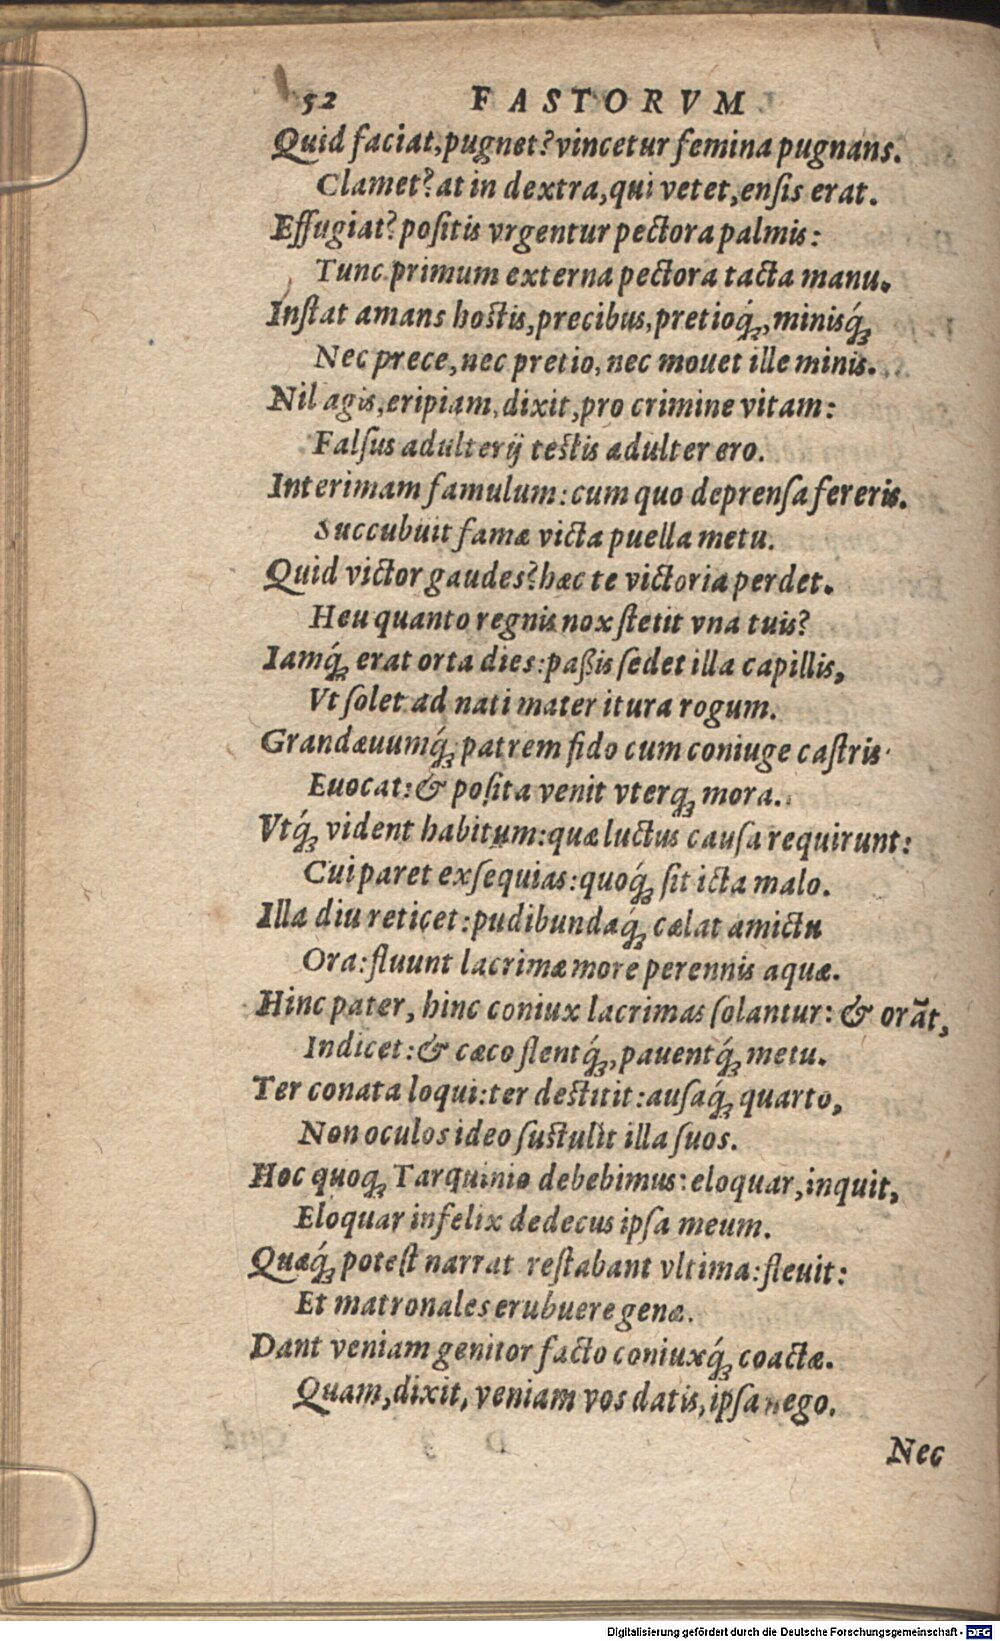 52 FASTORVM
Quid faciat, pugnet? vincetur femina pugnans.
Clamet? at in dextra, qui vetet, enſis erat.
Effugiat? poſitis vrgentur pectora palmis:
Tunc primum externa pectora tacta manu.
Inſtat amans hostis, precibus, pretioq́;, minisq́;
Nec prece, nec pretio, nec mouet ille minis.
Nil agis, eripiam, dixit, pro crimine vitam:
Falſus adulterij testis adulter ero.
Interimam famulum: cum quo deprenſa fereris.
Succubuit famæ victa puella metu.
Quid victor gaudes? hæc te victoria perdet.
Heu quanto regnis nox ſtetit vna tuis?
Iamq́; erat orta dies: paßis ſedet illa capillis,
Vt ſolet ad nati mater itura rogum.
Grandæuumq́; patrem fido cum coniuge caſtris
Euocat: & poſita venit vterq; mora.
Vtq́; vident habitum: quæ luctus cauſa requirunt:
Cui paret exſequias: quoq́; ſit icta malo.
Illa diu reticet: pudibundaq́; cælat amictu
Ora: fluunt lacrimæ more perennis aquæ.
Hinc pater, hinc coniux lacrimas ſolantur: & orãt,
Indicet: & cæco flentq́;, pauentq́; metu.
Ter conata loqui: ter destitit: auſaq́; quarto,
Non oculos ideo ſustulit illa ſuos.
Hoc quoq; Tarquinio debebimus: eloquar, inquit,
Eloquar infelix dedecus ipſa meum.
Quæq́; poteſt narrat reſtabant vltima: fleuit:
Et matronales erubuere genæ.
Dant veniam genitor facto coniuxq́; coactæ.
Quam, dixit, veniam vos datis, ipſa nego.
Nec
Digitalisierung gefördert durch die Deutsche Forschungsgemeinschaft - DFG